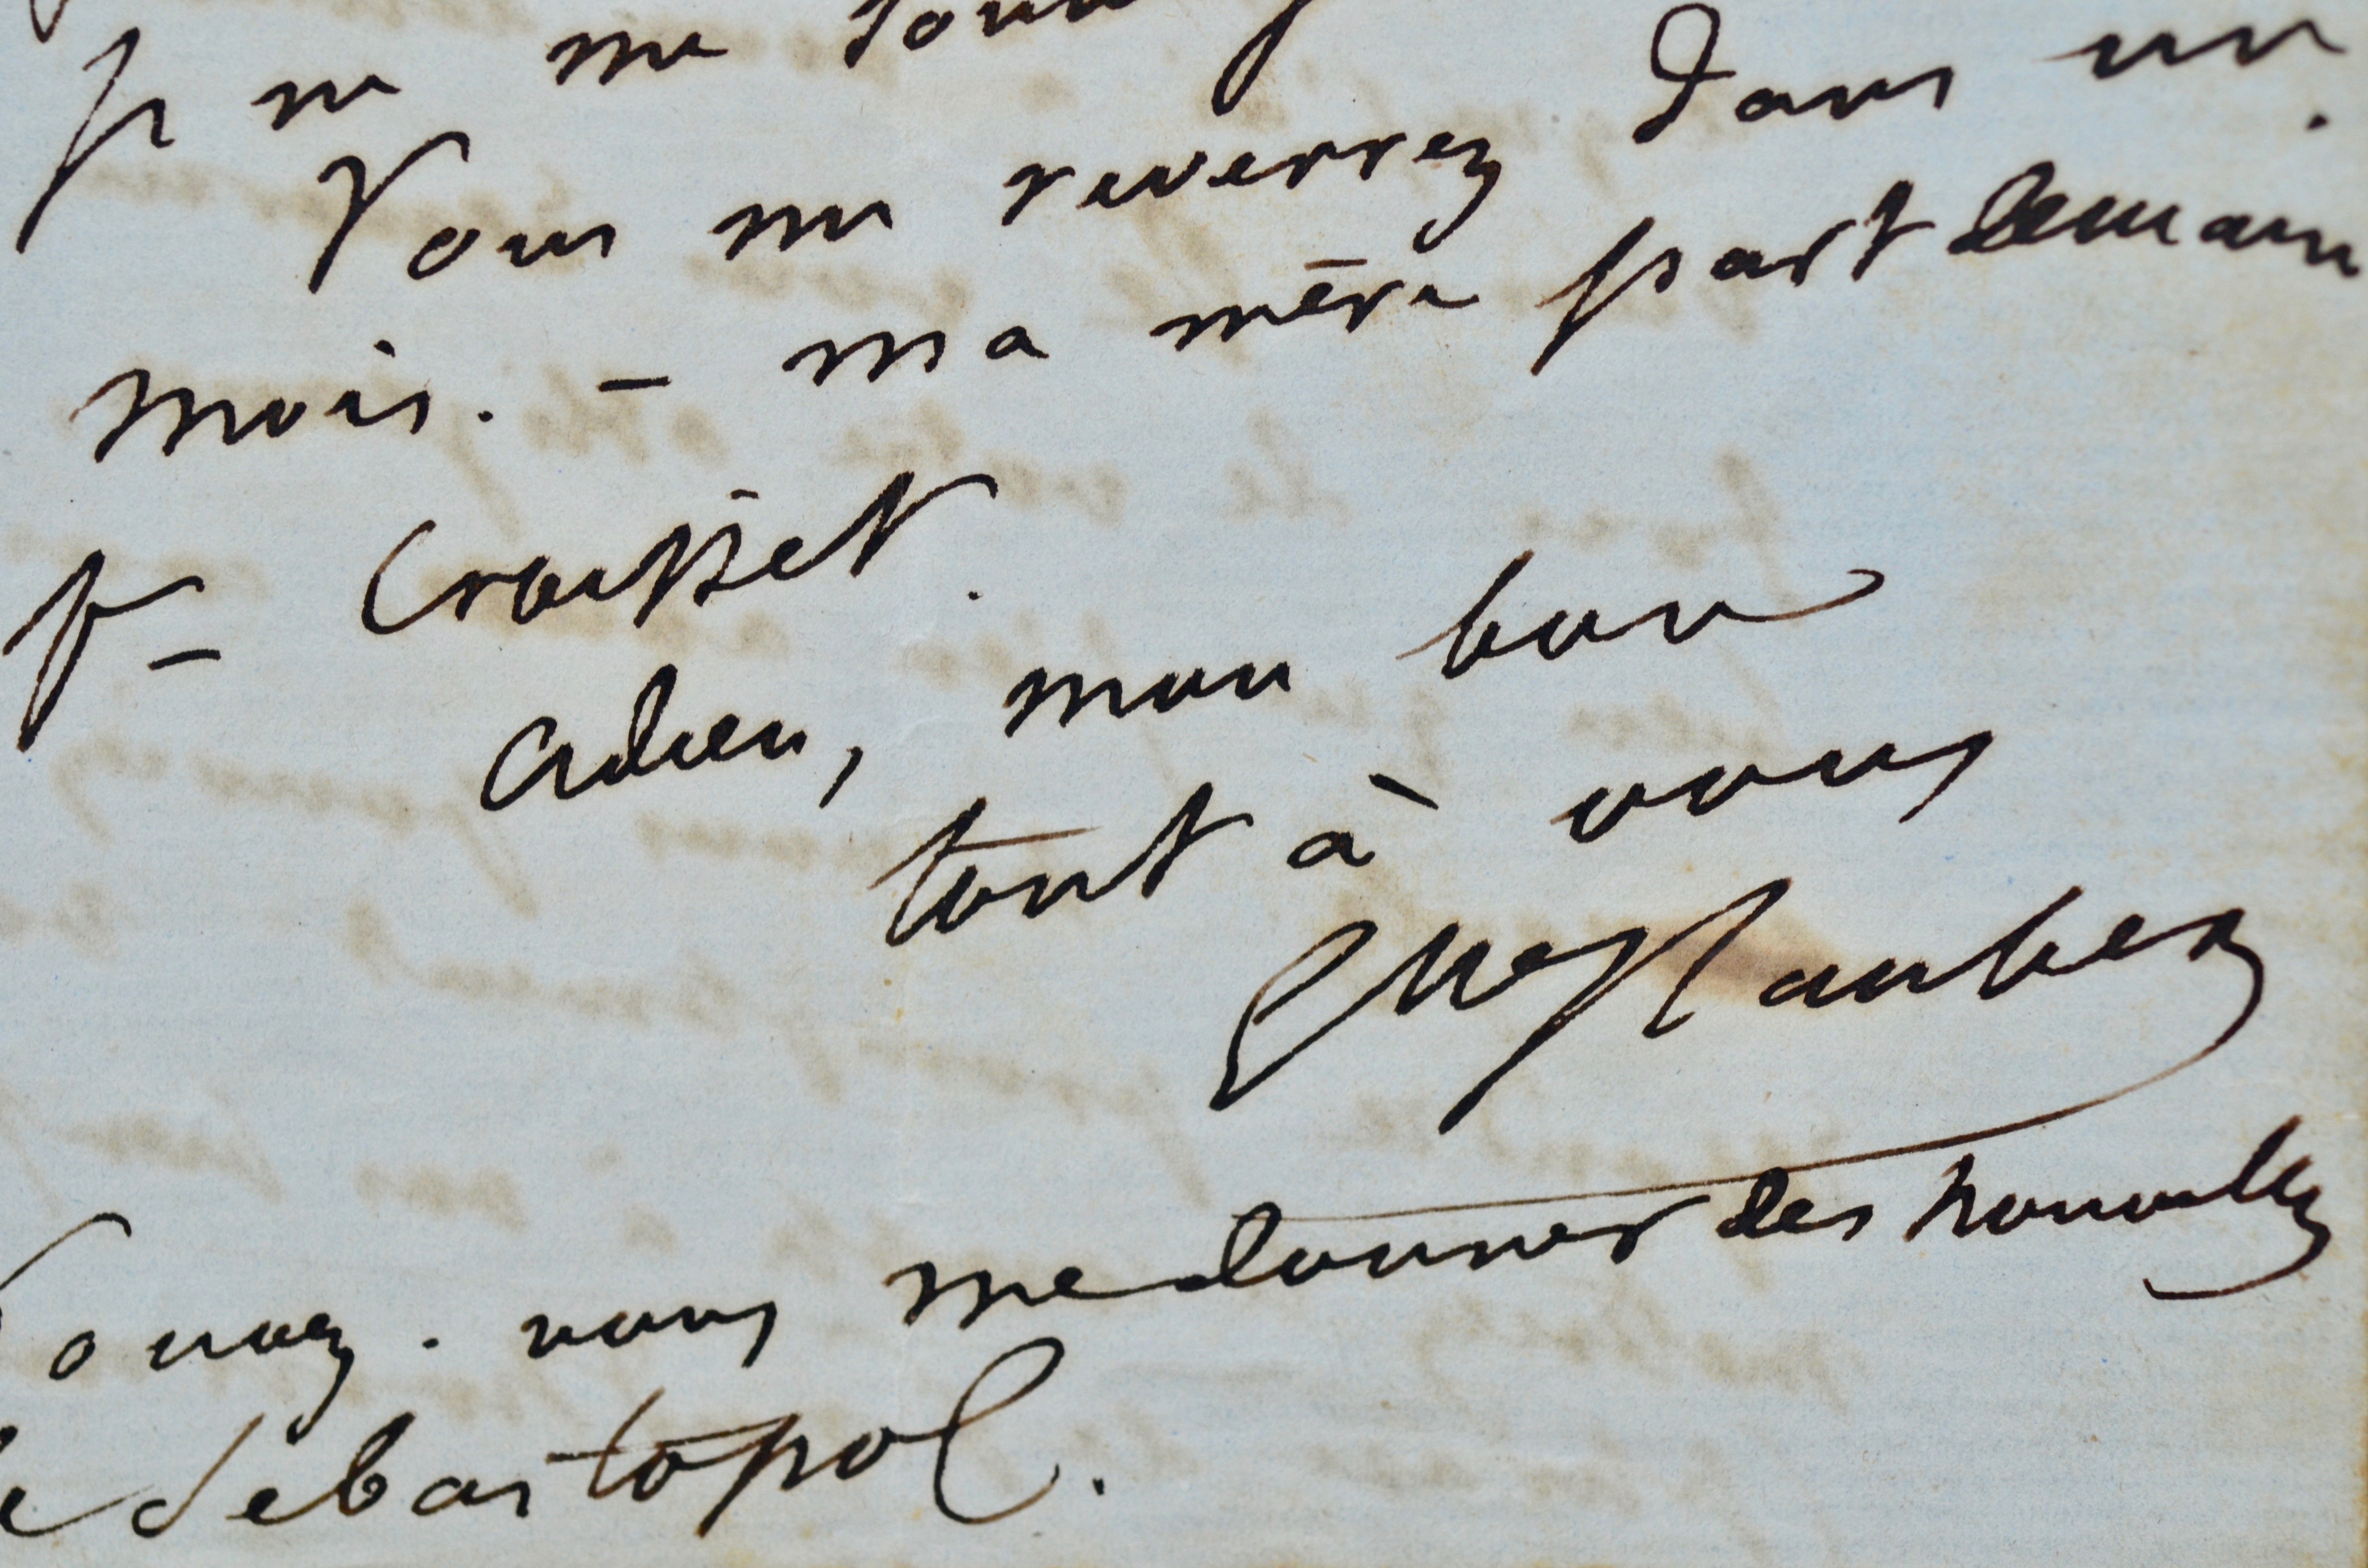 je ne me
Vous me reverrez dans un
mois. - ma mère part demain
pr - Croisset.
adieu, mon bon
tout à vous
Gve Flaubert
vous me donner des nouvelles
de Sébastopol.